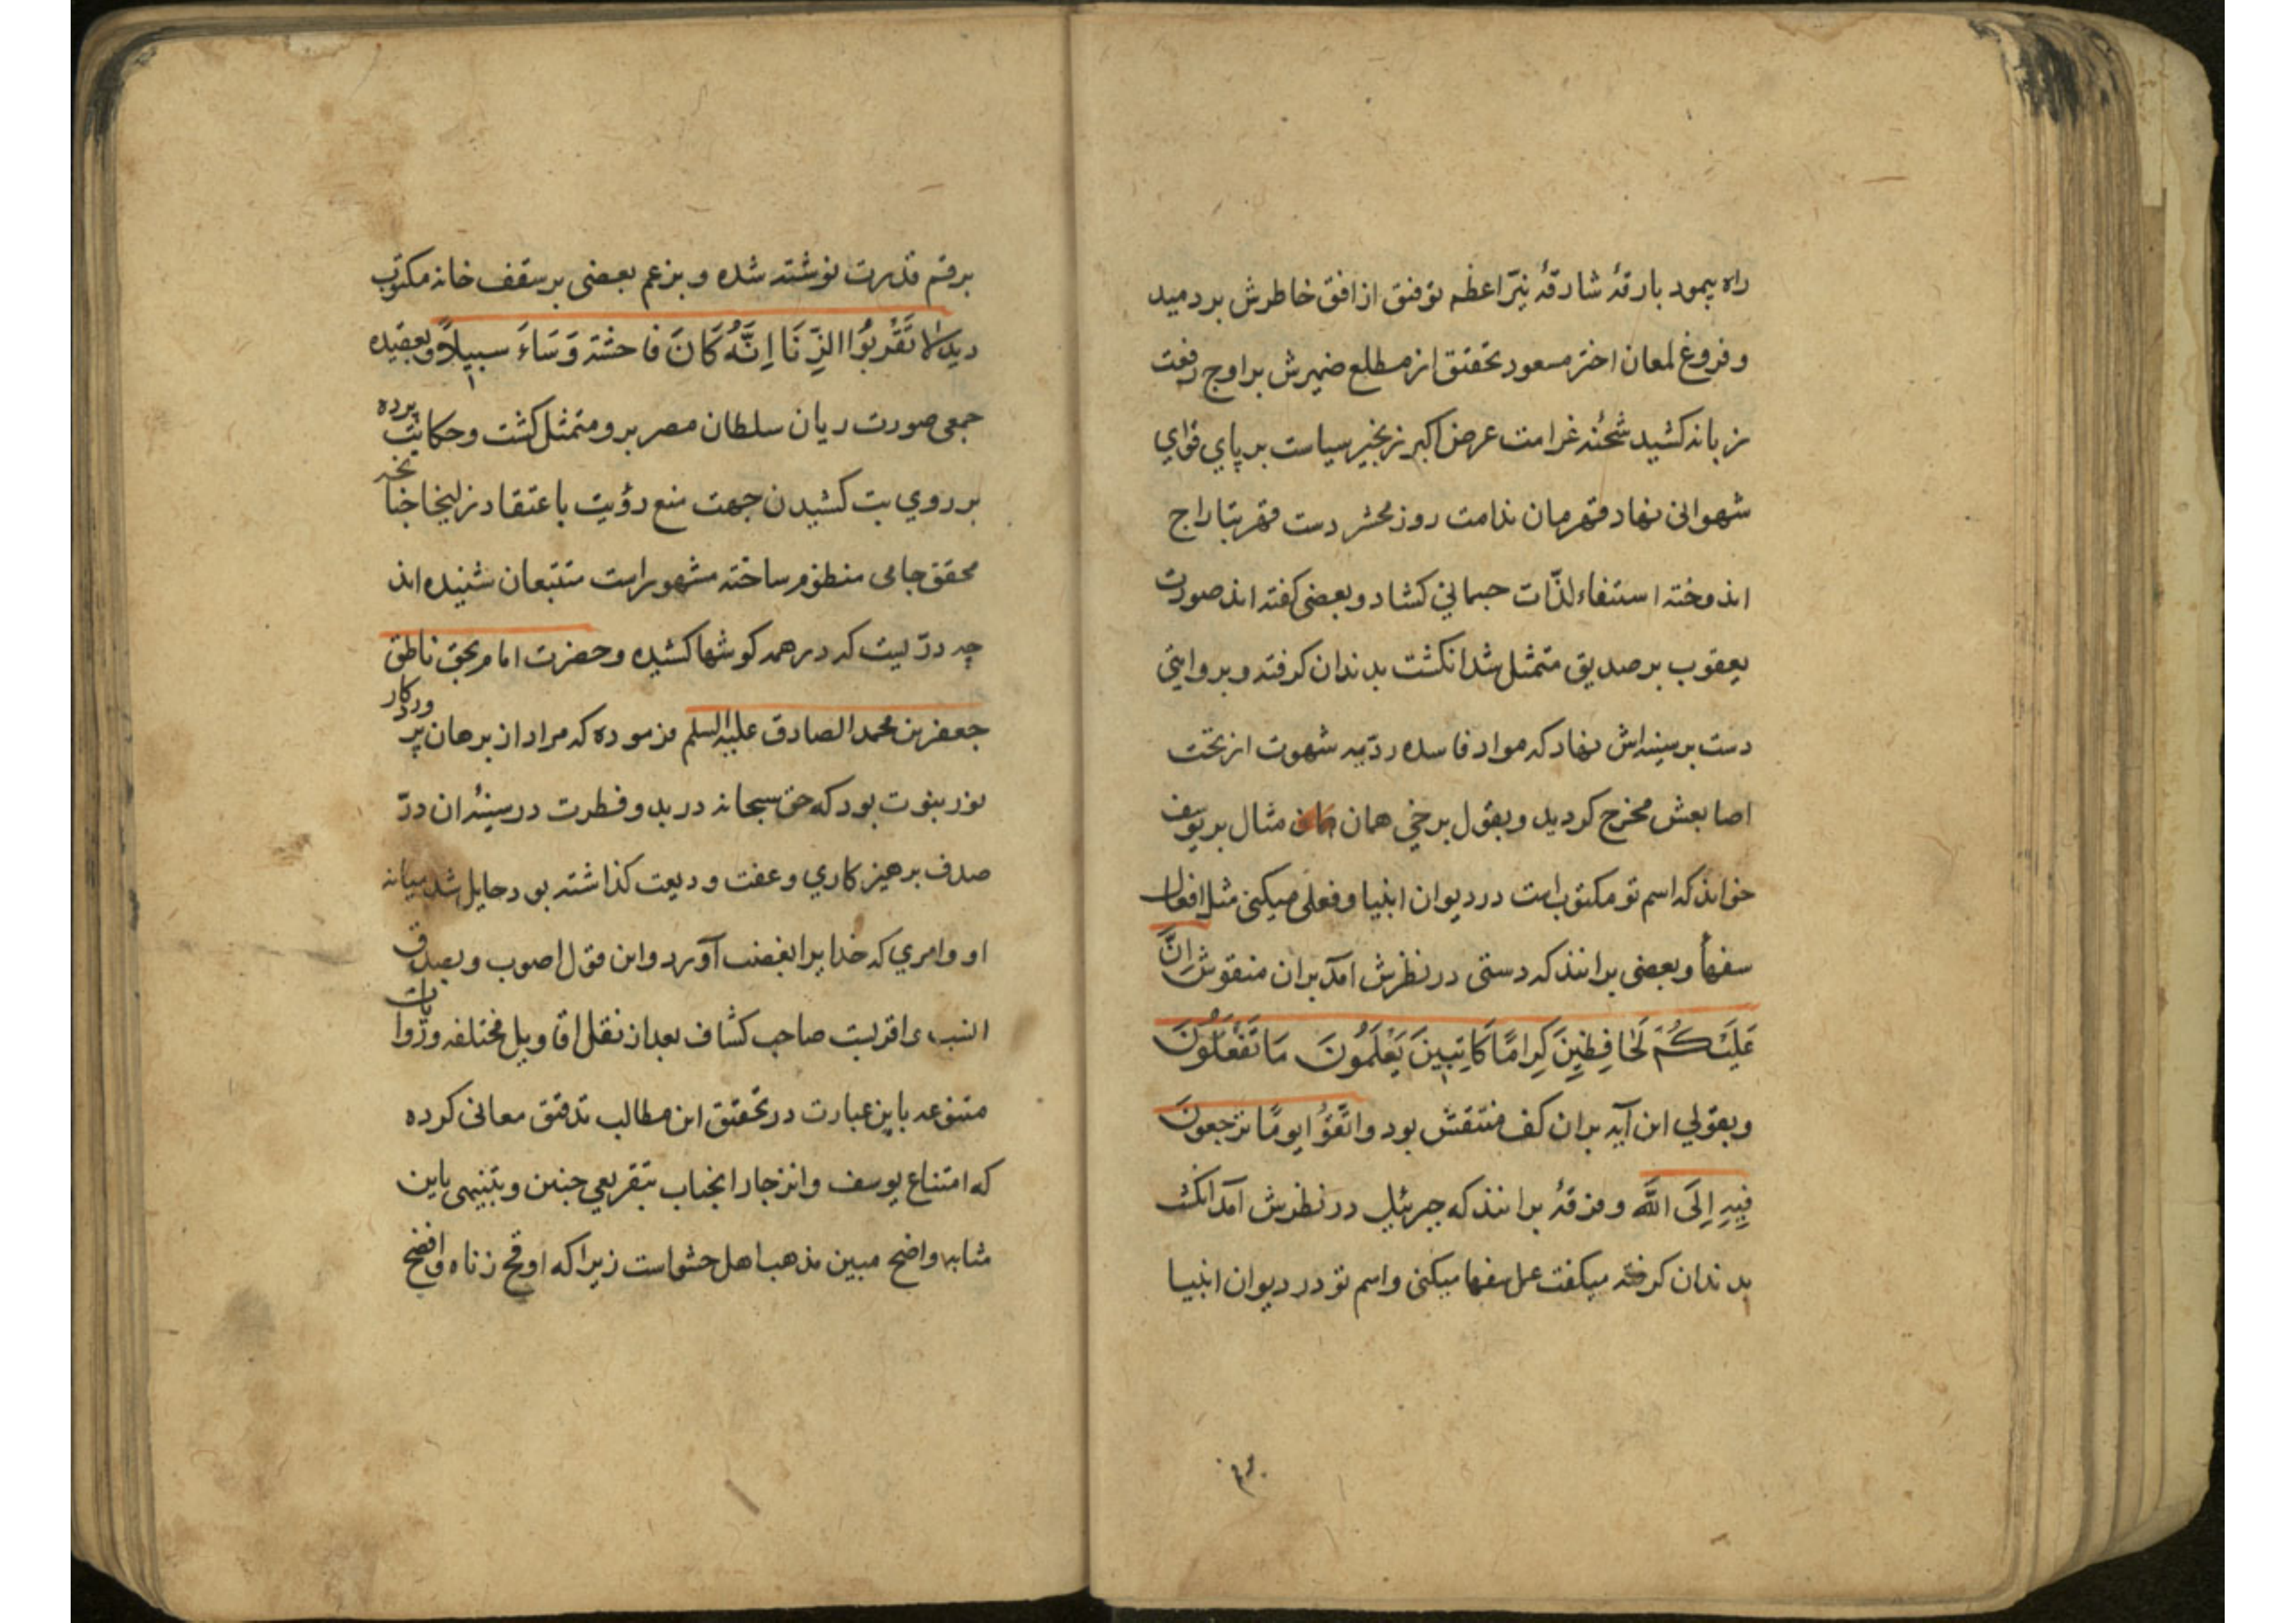 راه پیمود بارقهٔ شارقهٔ نیّر اعظم توفیق از افق خاطرش بردمید
و فروغ لمعان اختر مسعود تحقیق از مطلع ضمیرش بر اوج رفعت
زبانه کشید شحنهٔ غرامت عرض اکبر زنجیر سیاست بر پای قوای
شهوانی نهاد قهرمان ندامت روز محشر دست قهر بتاراج
اندوخته استیفاء لذّات جسمانی کشاد و بعضی کفته اند صورت
یعقوب بر صدیق متمثل شد انکشت بدندان کرفته و بروایتی
دست بر سینه اش نهاد که مواد فاسده ردّیه شهوت از تحت
اصابعش مخرج کردید و بقول برخی همان مثال بر یوسف
خواند که اسم تو مکتوب است در دیوان انبیا و فعلی میکنی مثل افعال
سفها و بعضی برانند که دستی در نظرش آمد بران منقوش اِنَّ
عَلَیْکُمْ لَحَافِظِینَ کِرَامًا کَاتِبِینَ یَعْلَمُونَ مَا تَفْعَلُونَ
و بقولی این آیه بران کف منتقش بود وَاتَّقُوا یومًا ترجعون
فِیهِ اِلَی اللّٰهِ و فرقهٔ برانند که جبرئیل در نظرش آمد انکشت
بدندان کرفته میکفت عمل سفها میکنی و اسم تو در دیوان انبیا
برقم قدرت نوشته شده و بزعم بعضی بر سقف خانه مکتوب
دید لا تَقْرَبُوا الزِّنَا اِنَّهُ کَانَ فاحشة وَسَاءَ سبیلاً و بعقیده
جمعی صورت ریان سلطان مصر برو متمثل کشت و حکایت پرده
بر روی بت کشیدن جهت منع رؤیت باعتقاد زلیخا چنانچه
محقق جامی منظوم ساخته مشهور است متتبعان شنیده اند
چه درّیست که در همه کوشها کشیده و حضرت امام بحق ناطق
جعفر بن محمد الصادق علیه السلم فرموده که مراد از برهان پروردکار
نور نبوت بود که حق سبحانه در بدو فطرت در سینهٔ ان درّ
صدف پرهیزکاری و عفت ودیعت کذاشته بود حایل شد میانه
او و امری که خدایرا بغضب آورد و این قول اصوب و بصدق
انسب و اقربست صاحب کشاف بعد از نقل اقاویل مختلفه و روایات
متنوعه باین عبارت در تحقیق این مطالب تدقیق معانی کرده
که امتناع یوسف و انزجار انجناب بتقریعی چنین و تنبیهی باین
مثابه واضح مبین مذهب اهل حشو است زیرا که اوقح زناه و افضح